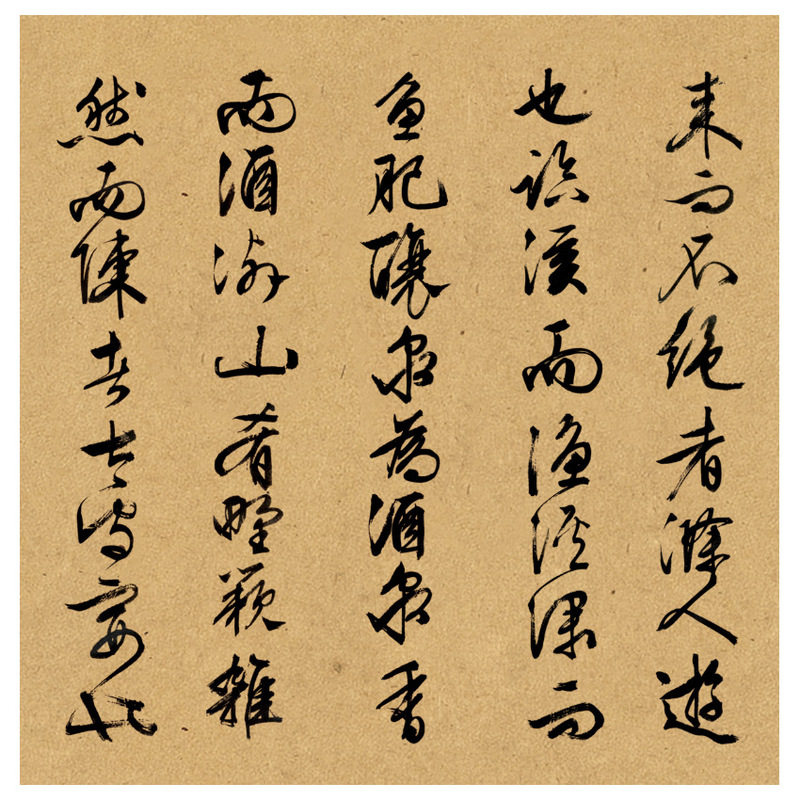 来而不绝者滁人遊
也临溪而渔溪深而
鱼肥酿泉为酒泉香
而酒洌山肴野蔌雜
然而陳者太守宴也